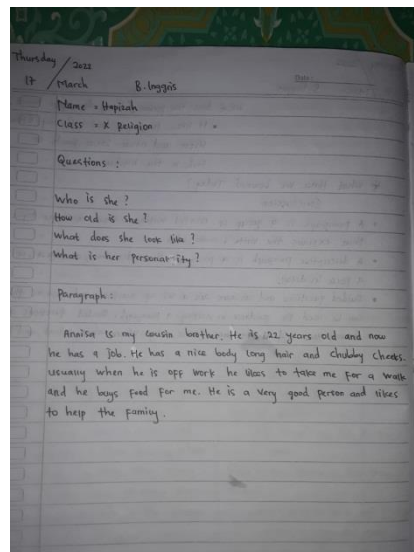 Thursday / 2022
17 / March B. Inggris
Name : Hapizah
Class : X Religion
Questions :
Who is she ?
How old is she ?
What does she look like ?
What is her personality ?
Paragraph :
Annisa is my cousin brother. He is 22 years old and now
he has a job. He has a nice body long hair and chubby cheeks.
usually when he is off work he likes to take me for a walk
and he buys food for me. He is a very good person and likes
to help the family.